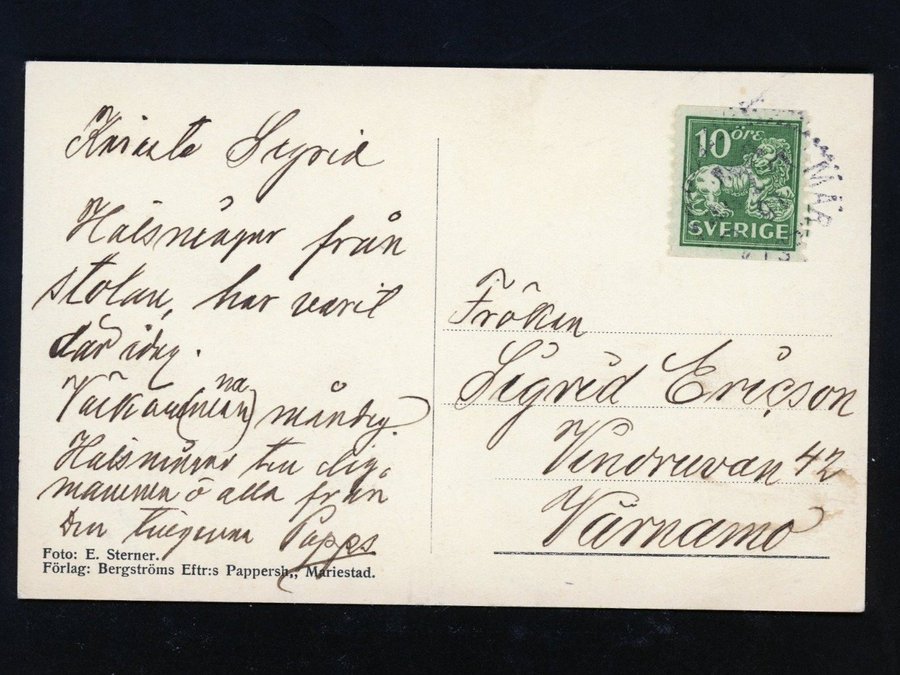 Käraste Sigrid
Hälsningar från
stolan, har varit
där idag.
Välkom(men na) måndag.
Hälsningar till dig,
mamma o alla från
Din tillgivna Papps
Foto: E. Sterner.
Förlag: Bergströms Eftr:s Pappersh., Mariestad.
10 öre
SVERIGE
Fröken
Sigrid Ericson
Vindruvan 42
Värnamo